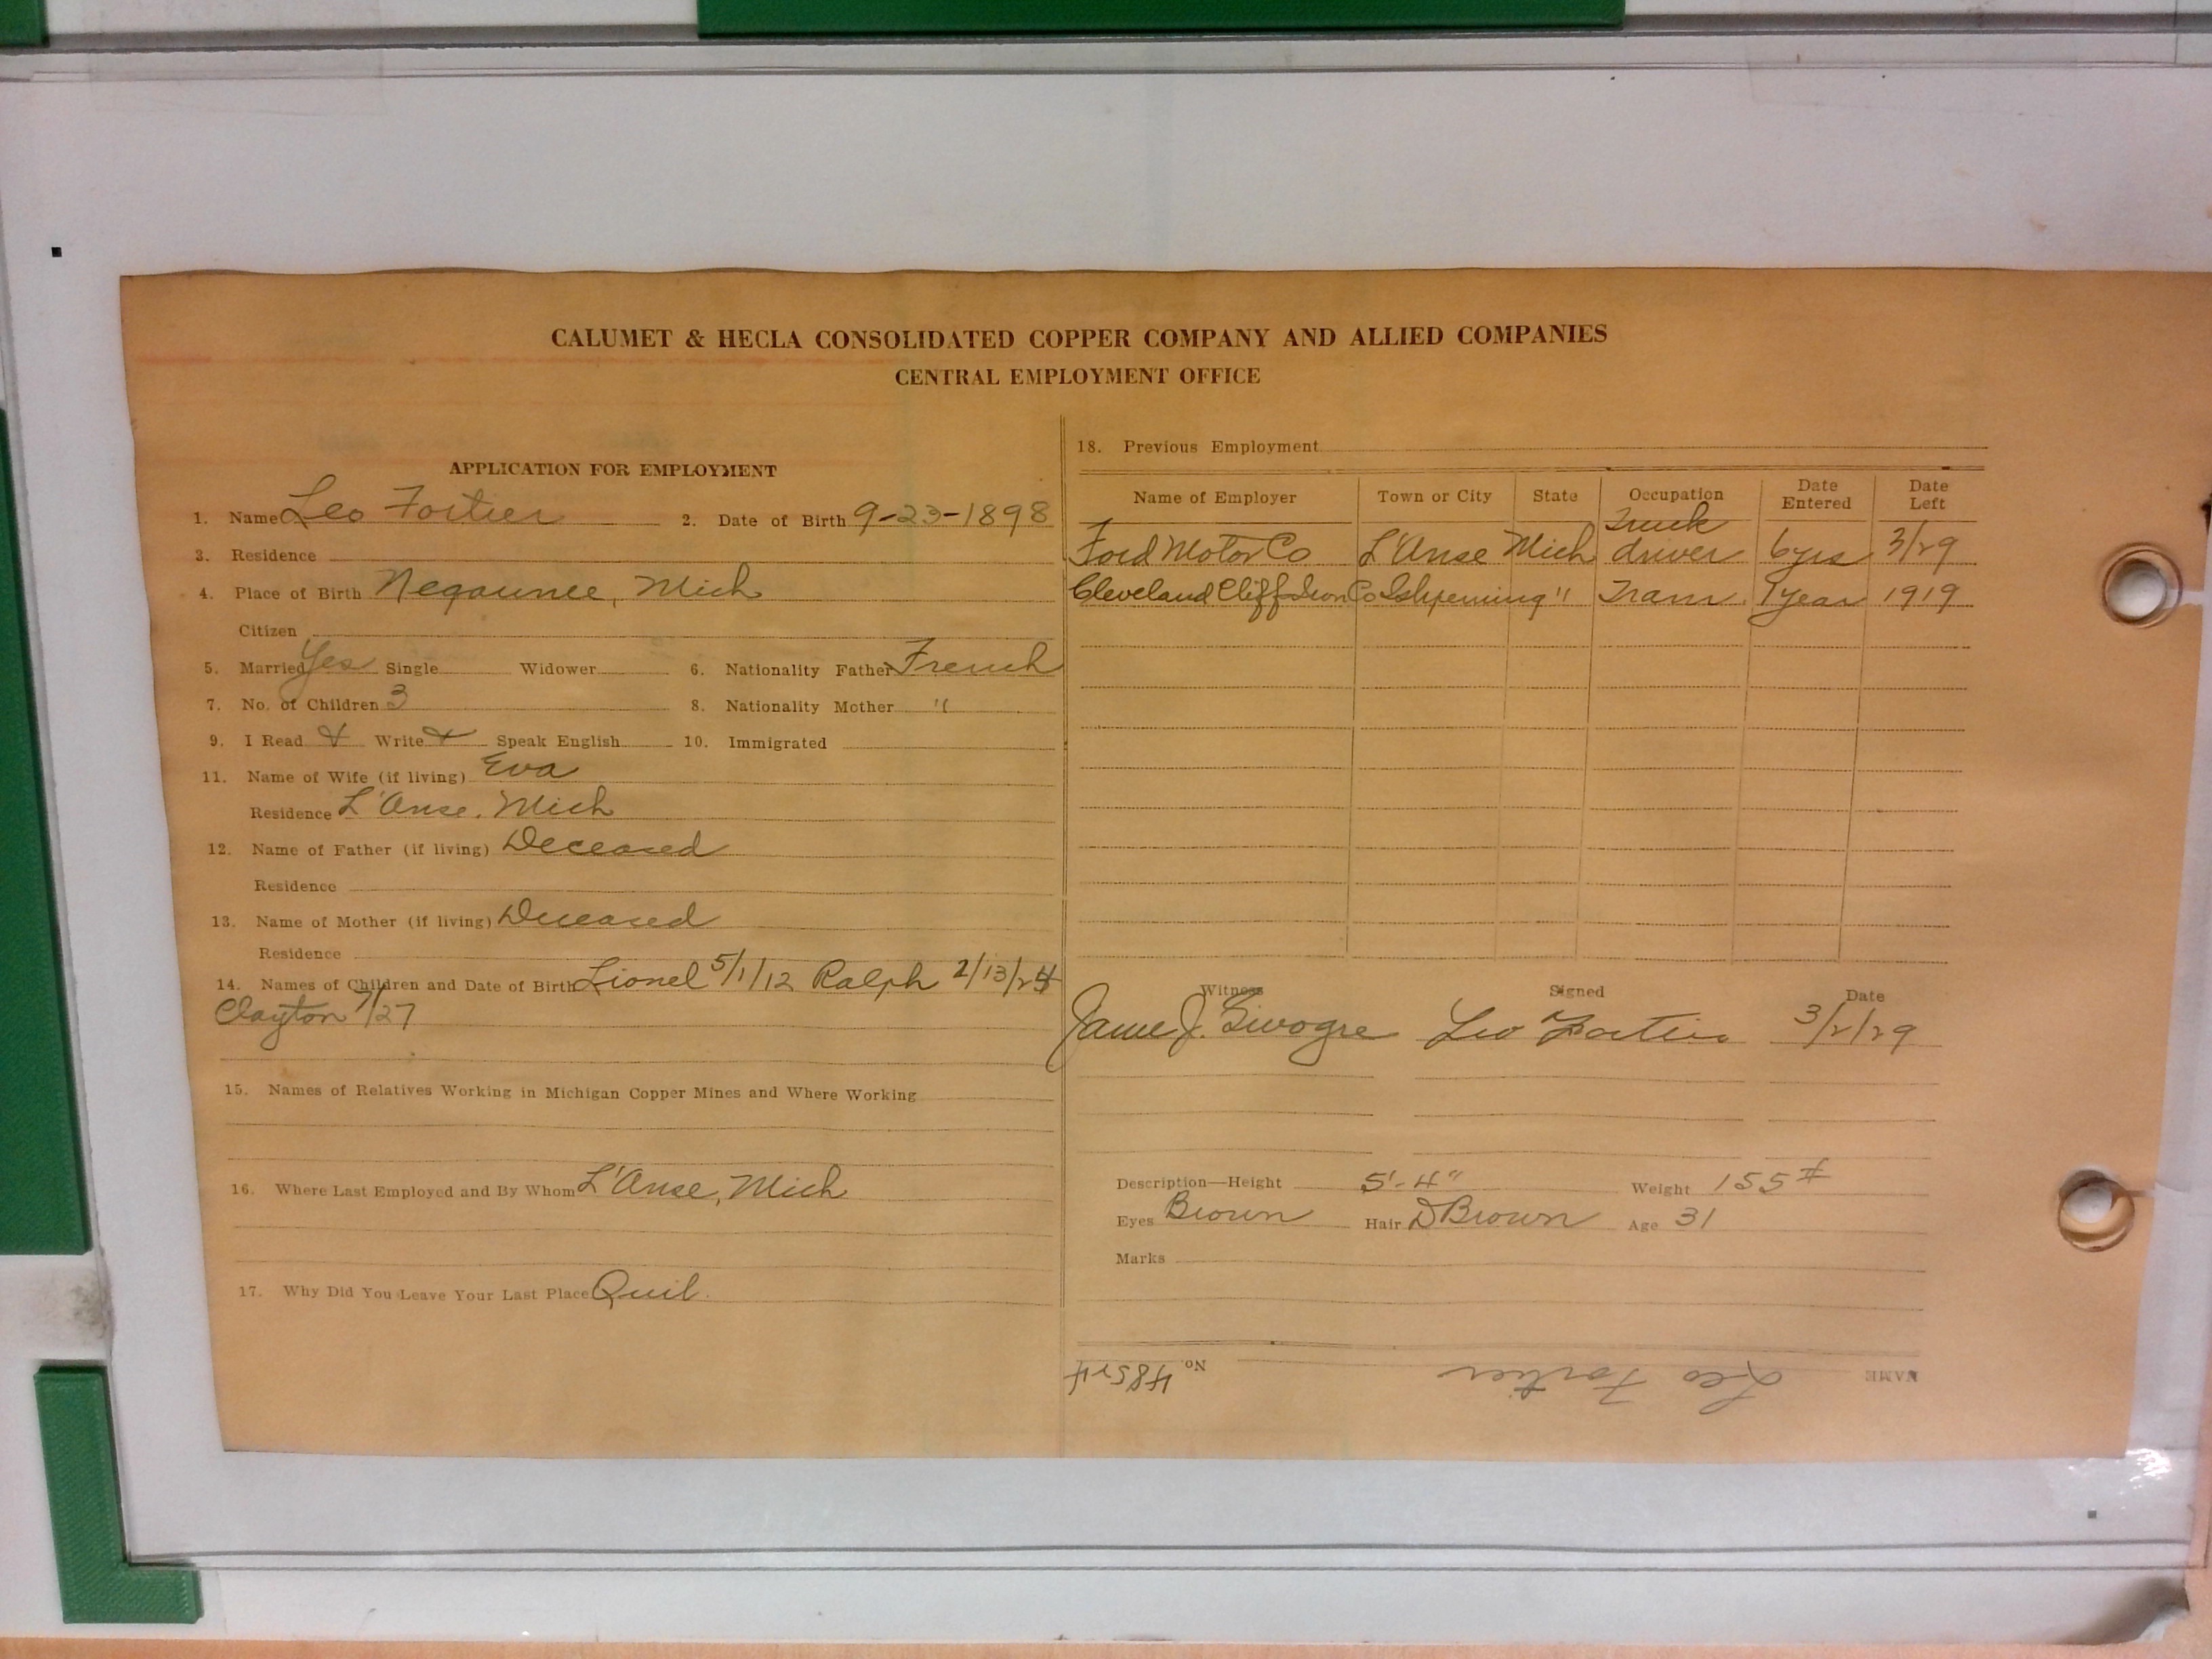 CALUMET & HECLA CONSOLIDATED COPPER COMPANY AND ALLIED COMPANIES
CENTRAL EMPLOYMENT OFFICE
APPLICATION FOR EMPLOYMENT
1. Name Leo Fortier 2. Date of Birth 9-23-1898
3. Residence
4. Place of Birth Negaunee, Mich
Citizen
5. Married Yes Single Widower 6. Nationality Father French
7. No. of Children 3 8. Nationality Mother "
9. I Read Write Speak English 10. Immigrated
11. Name of Wife (if living) Eva
Residence L'Anse, Mich
12. Name of Father (if living) Deceased
Residence
13. Name of Mother (if living) Deceased
Residence
14. Names of Children and Date of Birth Lionel 5/1/12 Ralph 2/13/24
Clayton 7/27
15. Names of Relatives Working in Michigan Copper Mines and Where Working
16. Where Last Employed and By Whom L'Anse, Mich
17. Why Did You Leave Your Last Place Quit.
18. Previous Employment
Name of Employer Town or City State Occupation Date Entered Date Left
Ford Motor Co L'Anse Mich Truck driver 6yrs 3/29
Cleveland Cliffs Iron Co Ishpeming " Tram. 1year 1919
Witness Signed Date
J. Leo Fortier 3/2/29
Description—Height 5'-4" Weight 155#
Eyes Brown Hair D Brown Age 31
Marks
NAME Leo Fortier No. 48524